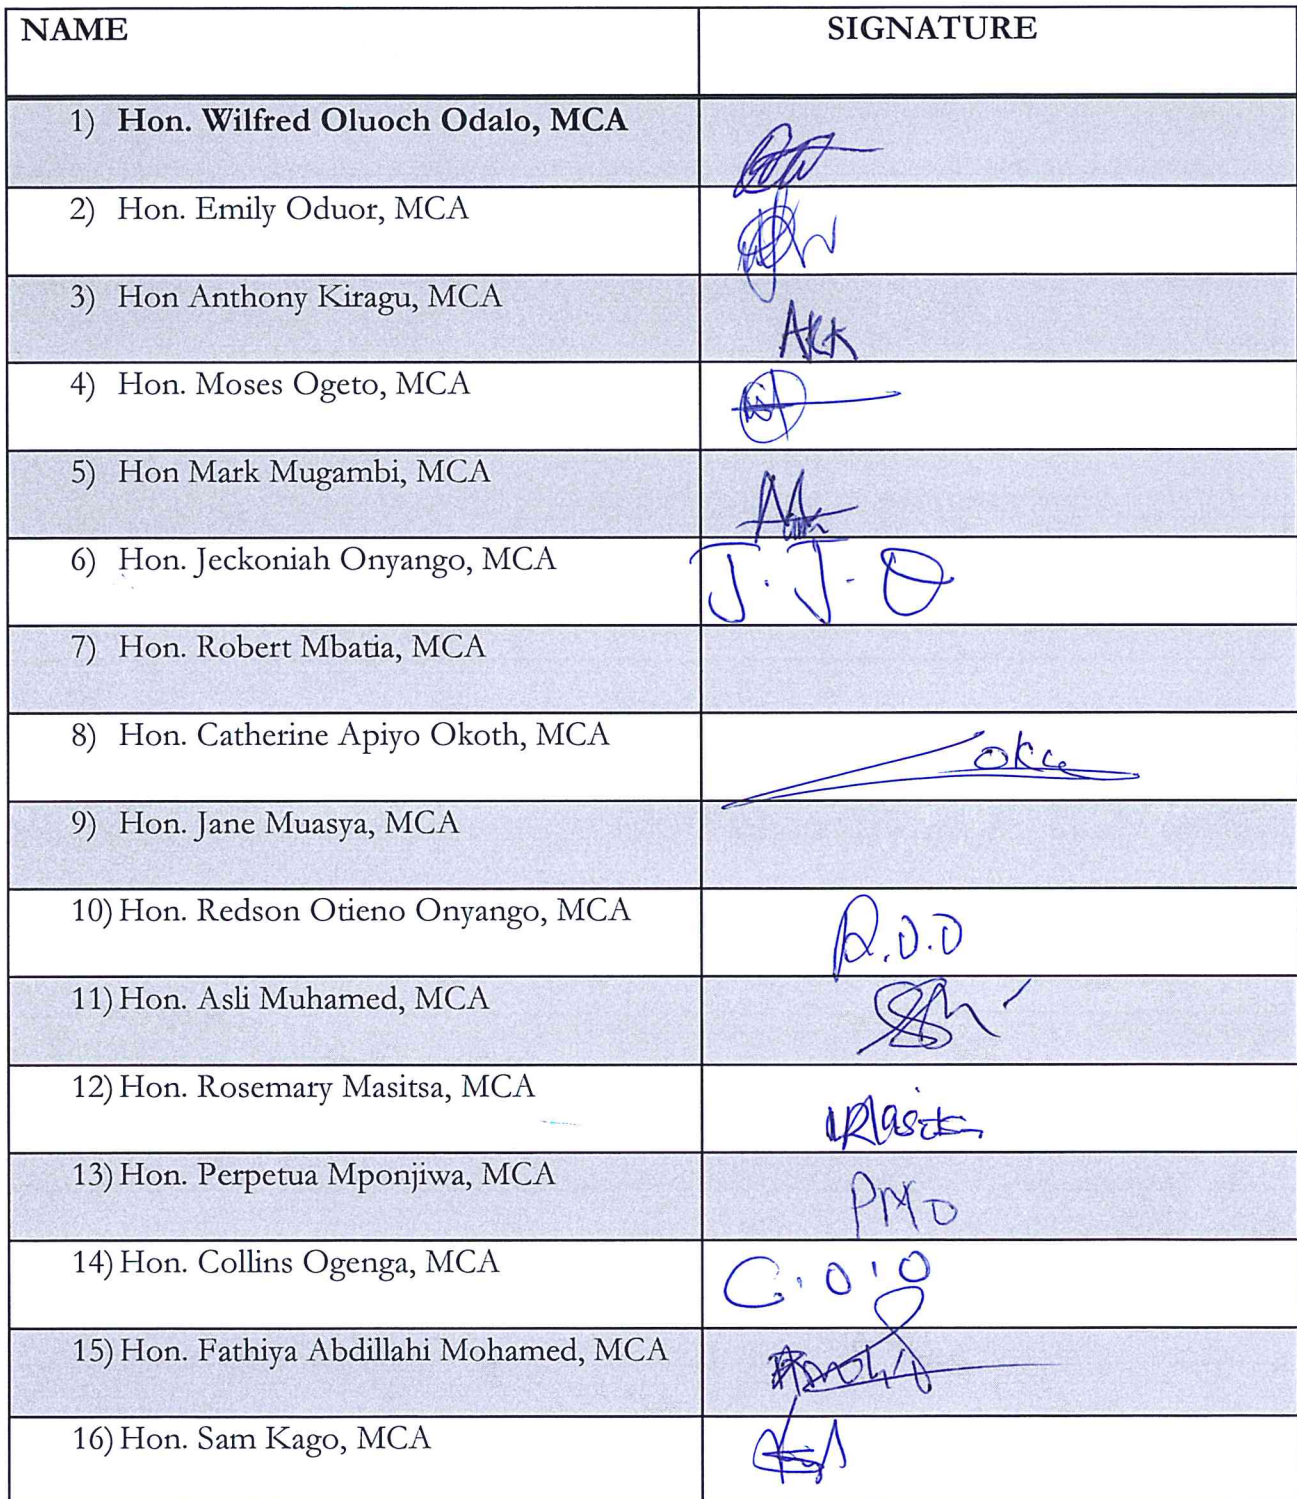 NAME SIGNATURE
1) Hon. Wilfred Oluoch Odalo, MCA
2) Hon. Emily Oduor, MCA
3) Hon Anthony Kiragu, MCA AKK
4) Hon. Moses Ogeto, MCA
5) Hon Mark Mugambi, MCA
6) Hon. Jeckoniah Onyango, MCA J. J. O
7) Hon. Robert Mbatia, MCA
8) Hon. Catherine Apiyo Okoth, MCA
9) Hon. Jane Muasya, MCA
10) Hon. Redson Otieno Onyango, MCA R.O.O
11) Hon. Asli Muhamed, MCA
12) Hon. Rosemary Masitsa, MCA
13) Hon. Perpetua Mponjiwa, MCA PMO
14) Hon. Collins Ogenga, MCA C.O.O
15) Hon. Fathiya Abdillahi Mohamed, MCA
16) Hon. Sam Kago, MCA